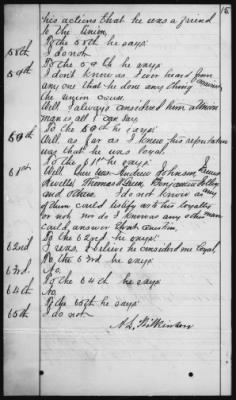 15.
his actions that he was a friend
to the Union.
To the 58th he says:
58th I do not.
To the 59th he says:
59th I don't know as I ever heard from
any one that he done any thing against
the union cause.
Well, I always considered him a Union
man is all I can say.
To the 60th he says:
60th Well, as far as I knew his reputation
was that he was loyal.
To the 61st he says:
61st Well, there was Andrew Johnson,
Thomas Benjamin
and others. I do not know as any
of them could testify as to his loyalty
or not nor do I know as any other man
could answer that question.
To the 62nd he says:
62nd I believe he considered me loyal.
To the 63rd he says:
63rd. No.
To the 64th he says
64th No.
To the 65th he says
65th I do not.
Wilkinson